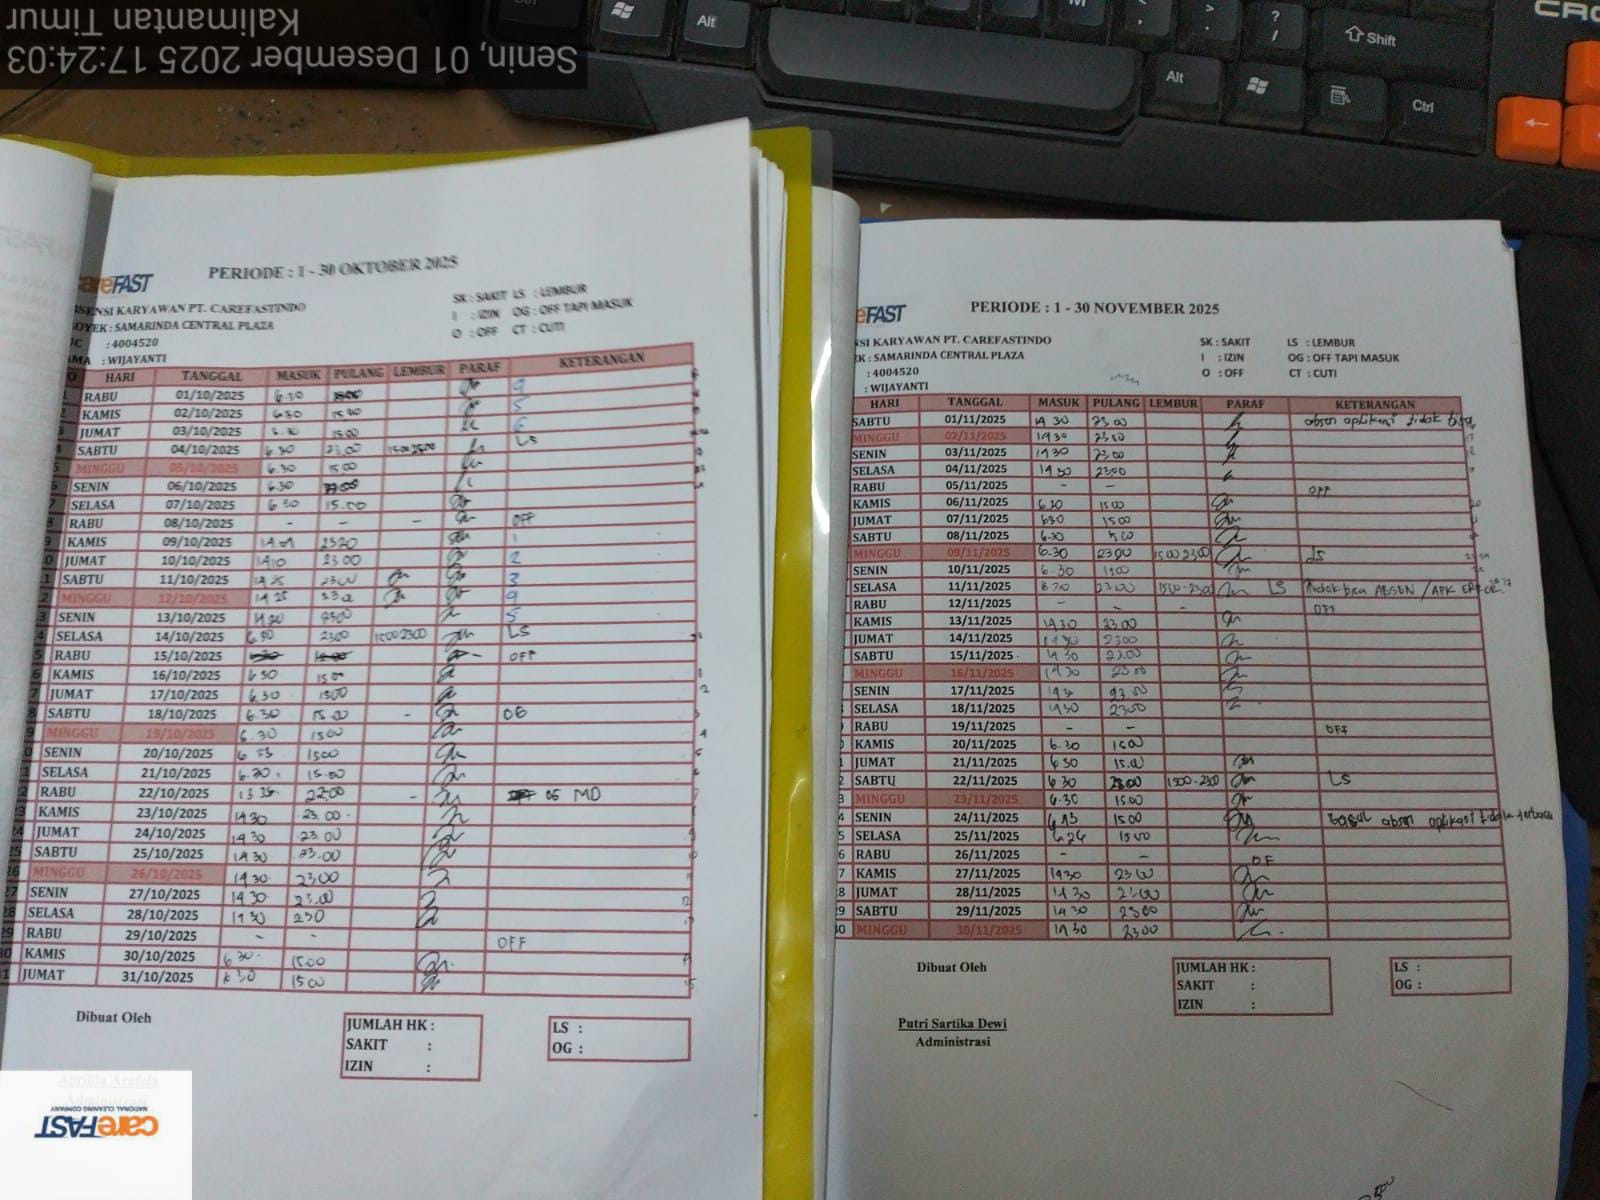 Senin, 01 Desember 2025 17:24:03
Kalimantan Timur
Ctrl
Alt
Alt
Shift
Ctrl
careFAST
PERIODE : 1 - 30 OKTOBER 2025
SENSI KARYAWAN PT. CAREFASTINDO
OYEK : SAMARINDA CENTRAL PLAZA
: 4004520
: WIJAYANTI
SK : SAKIT LS : LEMBUR
I : IZIN OG : OFF TAPI MASUK
O : OFF CT : CUTI
HARI TANGGAL MASUK PULANG LEMBUR PARAF KETERANGAN
RABU 01/10/2025 6.30 9
KAMIS 02/10/2025 6.30 15.00 5
JUMAT 03/10/2025 15.00 6
SABTU 04/10/2025 6.30 23.00 LS
MINGGU 05/10/2025 6.30 15.00
SENIN 06/10/2025 6.30
SELASA 07/10/2025 6.30 15.00
RABU 08/10/2025 - - - OFF
KAMIS 09/10/2025 1
JUMAT 10/10/2025 14.10 23.00 2
SABTU 11/10/2025 14.25 23.00 3
MINGGU 12/10/2025 14.25 9
SENIN 13/10/2025 5
SELASA 14/10/2025 23.00 1500 2300 LS
RABU 15/10/2025 - OFF
KAMIS 16/10/2025 6.30 15.00
JUMAT 17/10/2025 6.30 1500
SABTU 18/10/2025 6.30 15.00 - OG
MINGGU 19/10/2025 6.30 1500
SENIN 20/10/2025 6.53 1500
SELASA 21/10/2025 6.30 15.00
RABU 22/10/2025 22.00 - OG MD
KAMIS 23/10/2025 14.30 23.00
JUMAT 24/10/2025 14.30 23.00
SABTU 25/10/2025 14.30 23.00
MINGGU 26/10/2025 14.30 23.00
SENIN 27/10/2025 14.30 23.00
SELASA 28/10/2025 230
RABU 29/10/2025 - - OFF
KAMIS 30/10/2025 6.30 1500
JUMAT 31/10/2025 6.30 1500
Dibuat Oleh
JUMLAH HK :
SAKIT :
IZIN :
LS :
OG :
Aprilia Arafela
Administrasi
careFAST
NATIONAL CLEANING COMPANY
eFAST
PERIODE : 1 - 30 NOVEMBER 2025
NSI KARYAWAN PT. CAREFASTINDO
K : SAMARINDA CENTRAL PLAZA
: 4004520
: WIJAYANTI
SK : SAKIT LS : LEMBUR
I : IZIN OG : OFF TAPI MASUK
O : OFF CT : CUTI
HARI TANGGAL MASUK PULANG LEMBUR PARAF KETERANGAN
SABTU 01/11/2025 14 30 23 00 absen aplikasi tidak bisa
MINGGU 02/11/2025 1430 2300
SENIN 03/11/2025 1430 23.00
SELASA 04/11/2025 1430 2300
RABU 05/11/2025 - - OFF
KAMIS 06/11/2025 6.30 15 00
JUMAT 07/11/2025 630 15 00
SABTU 08/11/2025 6.30
MINGGU 09/11/2025 6.30 2300 1500 2300 LS
SENIN 10/11/2025 6.30
SELASA 11/11/2025 2300 1500-2300 LS tidak bisa ABSEN / APK ERROR
RABU 12/11/2025 - - - OFF
KAMIS 13/11/2025 14.30 23.00
JUMAT 14/11/2025 2300
SABTU 15/11/2025 14 30 23.00
MINGGU 16/11/2025 14 30 23 00
SENIN 17/11/2025 23 00
SELASA 18/11/2025 1430 2300
RABU 19/11/2025 - - OFF
KAMIS 20/11/2025 6.30 1500
JUMAT 21/11/2025 6 30 15.00
SABTU 22/11/2025 6 30 2300 1500-2300 LS
MINGGU 23/11/2025 6.30 15.00
SENIN 24/11/2025 15 00 absen aplikasi tidak terbaca
SELASA 25/11/2025 6.24 1500
RABU 26/11/2025 - - OF
KAMIS 27/11/2025 1430 23 00
JUMAT 28/11/2025 14 30 23.00
SABTU 29/11/2025 14 30 2300
MINGGU 30/11/2025 14 30 23.00
Dibuat Oleh
JUMLAH HK :
SAKIT :
IZIN :
LS :
OG :
Putri Sartika Dewi
Administrasi